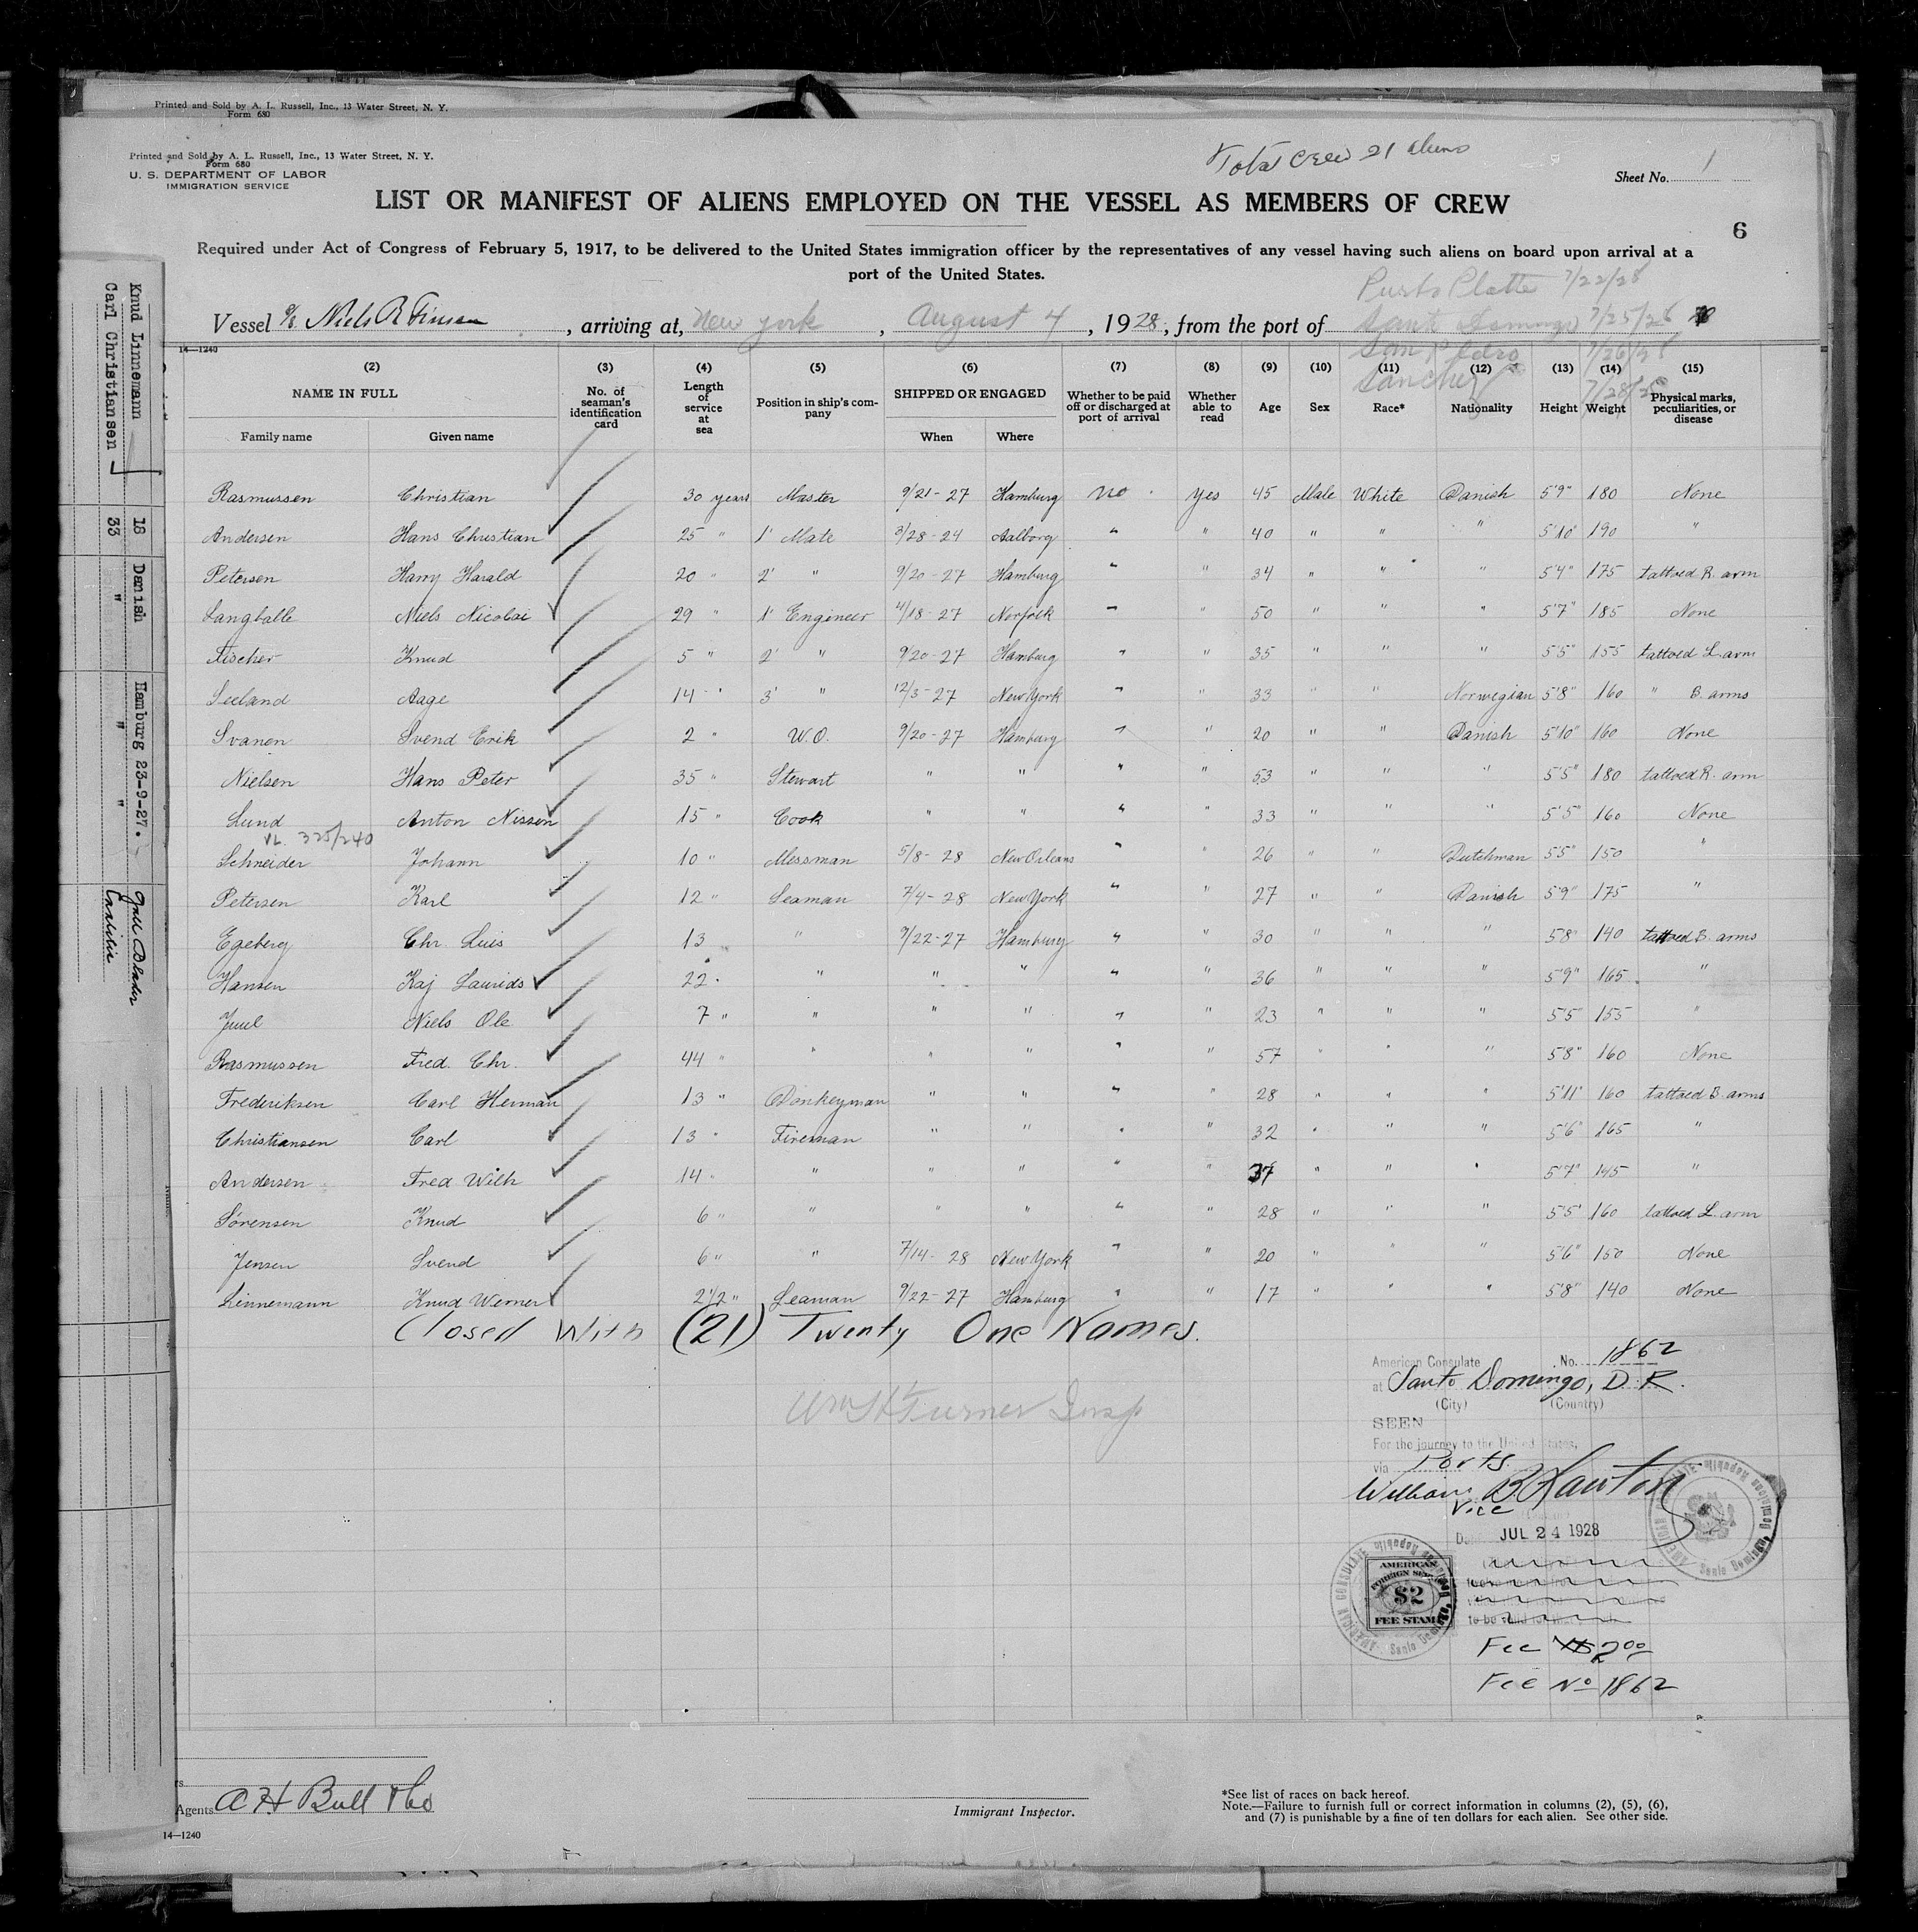 Printed and Sold by A. L. Russell, Inc., 13 Water Street, N. Y.
Form 680
Printed and Sold by A. L. Russell, Inc., 13 Water Street, N. Y.
Form 680
U. S. DEPARTMENT OF LABOR
IMMIGRATION SERVICE
Total Crew 21 aliens
Sheet No. 1
LIST OR MANIFEST OF ALIENS EMPLOYED ON THE VESSEL AS MEMBERS OF CREW
6
Required under Act of Congress of February 5, 1917, to be delivered to the United States immigration officer by the representatives of any vessel having such aliens on board upon arrival at a
port of the United States.
Puerto Platte 7/22/28
Vessel S/S Niels R Finsen, arriving at, New York, August 4, 1928, from the port of Santo Domingo 7/25/28
San Pedro 7/26/28
Sanchez 7/28/28
14—1240
(2) (3) (4) (5) (6) (7) (8) (9) (10) (11) (12) (13) (14) (15)
NAME IN FULL No. of seaman's identification card Length of service at sea Position in ship's company SHIPPED OR ENGAGED Whether to be paid off or discharged at port of arrival Whether able to read Age Sex Race* Nationality Height Weight Physical marks, peculiarities, or disease
Family name Given name When Where
Rasmussen Christian 30 years Master 9/21-27 Hamburg no yes 45 Male White Danish 5'9" 180 None
Andersen Hans Christian 25 " 1' Mate 3/28-24 Aalborg " " 40 " " " 5'10" 190 "
Petersen Harry Harald 20 " 2' " 9/20-27 Hamburg " " 34 " " " 5'4" 175 tattoed R. arm
Langballe Niels Nicolai 29 " 1' Engineer 4/18-27 Norfolk " " 50 " " " 5'7" 185 None
Fischer Knud 5 " 2' " 9/20-27 Hamburg " " 35 " " " 5'5" 155 tattoed L. arm
Seeland Aage 14 " 3' " 12/3-27 New York " " 33 " " Norwegian 5'8" 160 " B. arms
Svanen Svend Erik 2 " W.O. 9/20-27 Hamburg " " 20 " " Danish 5'10" 160 None
Nielsen Hans Peter 35 " Stewart " " " " 53 " " " 5'5" 180 tattoed R. arm
Lund Anton Nissen 15 " Cook " " " " 33 " " " 5'5" 160 None
VL. 325/240
Schneider Johann 10 " Messman 5/8-28 New Orleans " " 26 " " Dutchman 5'5" 150 "
Petersen Karl 12 " Seaman 7/4-28 New York " " 27 " " Danish 5'9" 175 "
Egeberg Chr. Luis 13 " " 9/22-27 Hamburg " " 30 " " " 5'8" 140 tattoed B. arms
Hansen Kaj Laurids 22 " " " " " " 36 " " " 5'9" 165 "
Juul Niels Ole 7 " " " " " " 23 " " " 5'5" 155 "
Rasmussen Fred. Chr. 44 " " " " " " 57 " " " 5'8" 160 None
Frederiksen Carl Herman 13 " Donkeyman " " " " 28 " " " 5'11" 160 tattoed B. arms
Christiansen Carl 13 " Fireman " " " " 32 " " " 5'6" 165 "
Andersen Fred Wilh 14 " " " " " " 37 " " " 5'7" 145 "
Sørensen Knud 6 " " " " " " 28 " " " 5'5" 160 tattoed L. arm
Jensen Svend 6 " " 7/14-28 New York " " 20 " " " 5'6" 150 None
Linnemann Knud Werner 2 1/2 " Seaman 9/22-27 Hamburg " " 17 " " " 5'8" 140 None
Closed With (21) Twenty One Names.
Wm H Turner Insp
American Consulate No. 1862
at Santo Domingo, D. R.
(City) (Country)
SEEN
For the journey to the United States,
via Ports
William B Lawton
Vice
JUL 24 1928
AMERICAN CONSULATE Santo Domingo, Dominican Republic
AMERICAN
FOREIGN SERVICE
$2
FEE STAMP
AMERICAN CONSULATE Santo Domingo, Dominican Republic
to be valid
Fee 2.00
Fee No 1862
Agents A H Bull & Co
Immigrant Inspector.
*See list of races on back hereof.
Note.—Failure to furnish full or correct information in columns (2), (5), (6),
and (7) is punishable by a fine of ten dollars for each alien. See other side.
14—1240
Knud Linnemann 18 Danish Hamburg 23-9-27.
Carl Christiansen 33 " " "